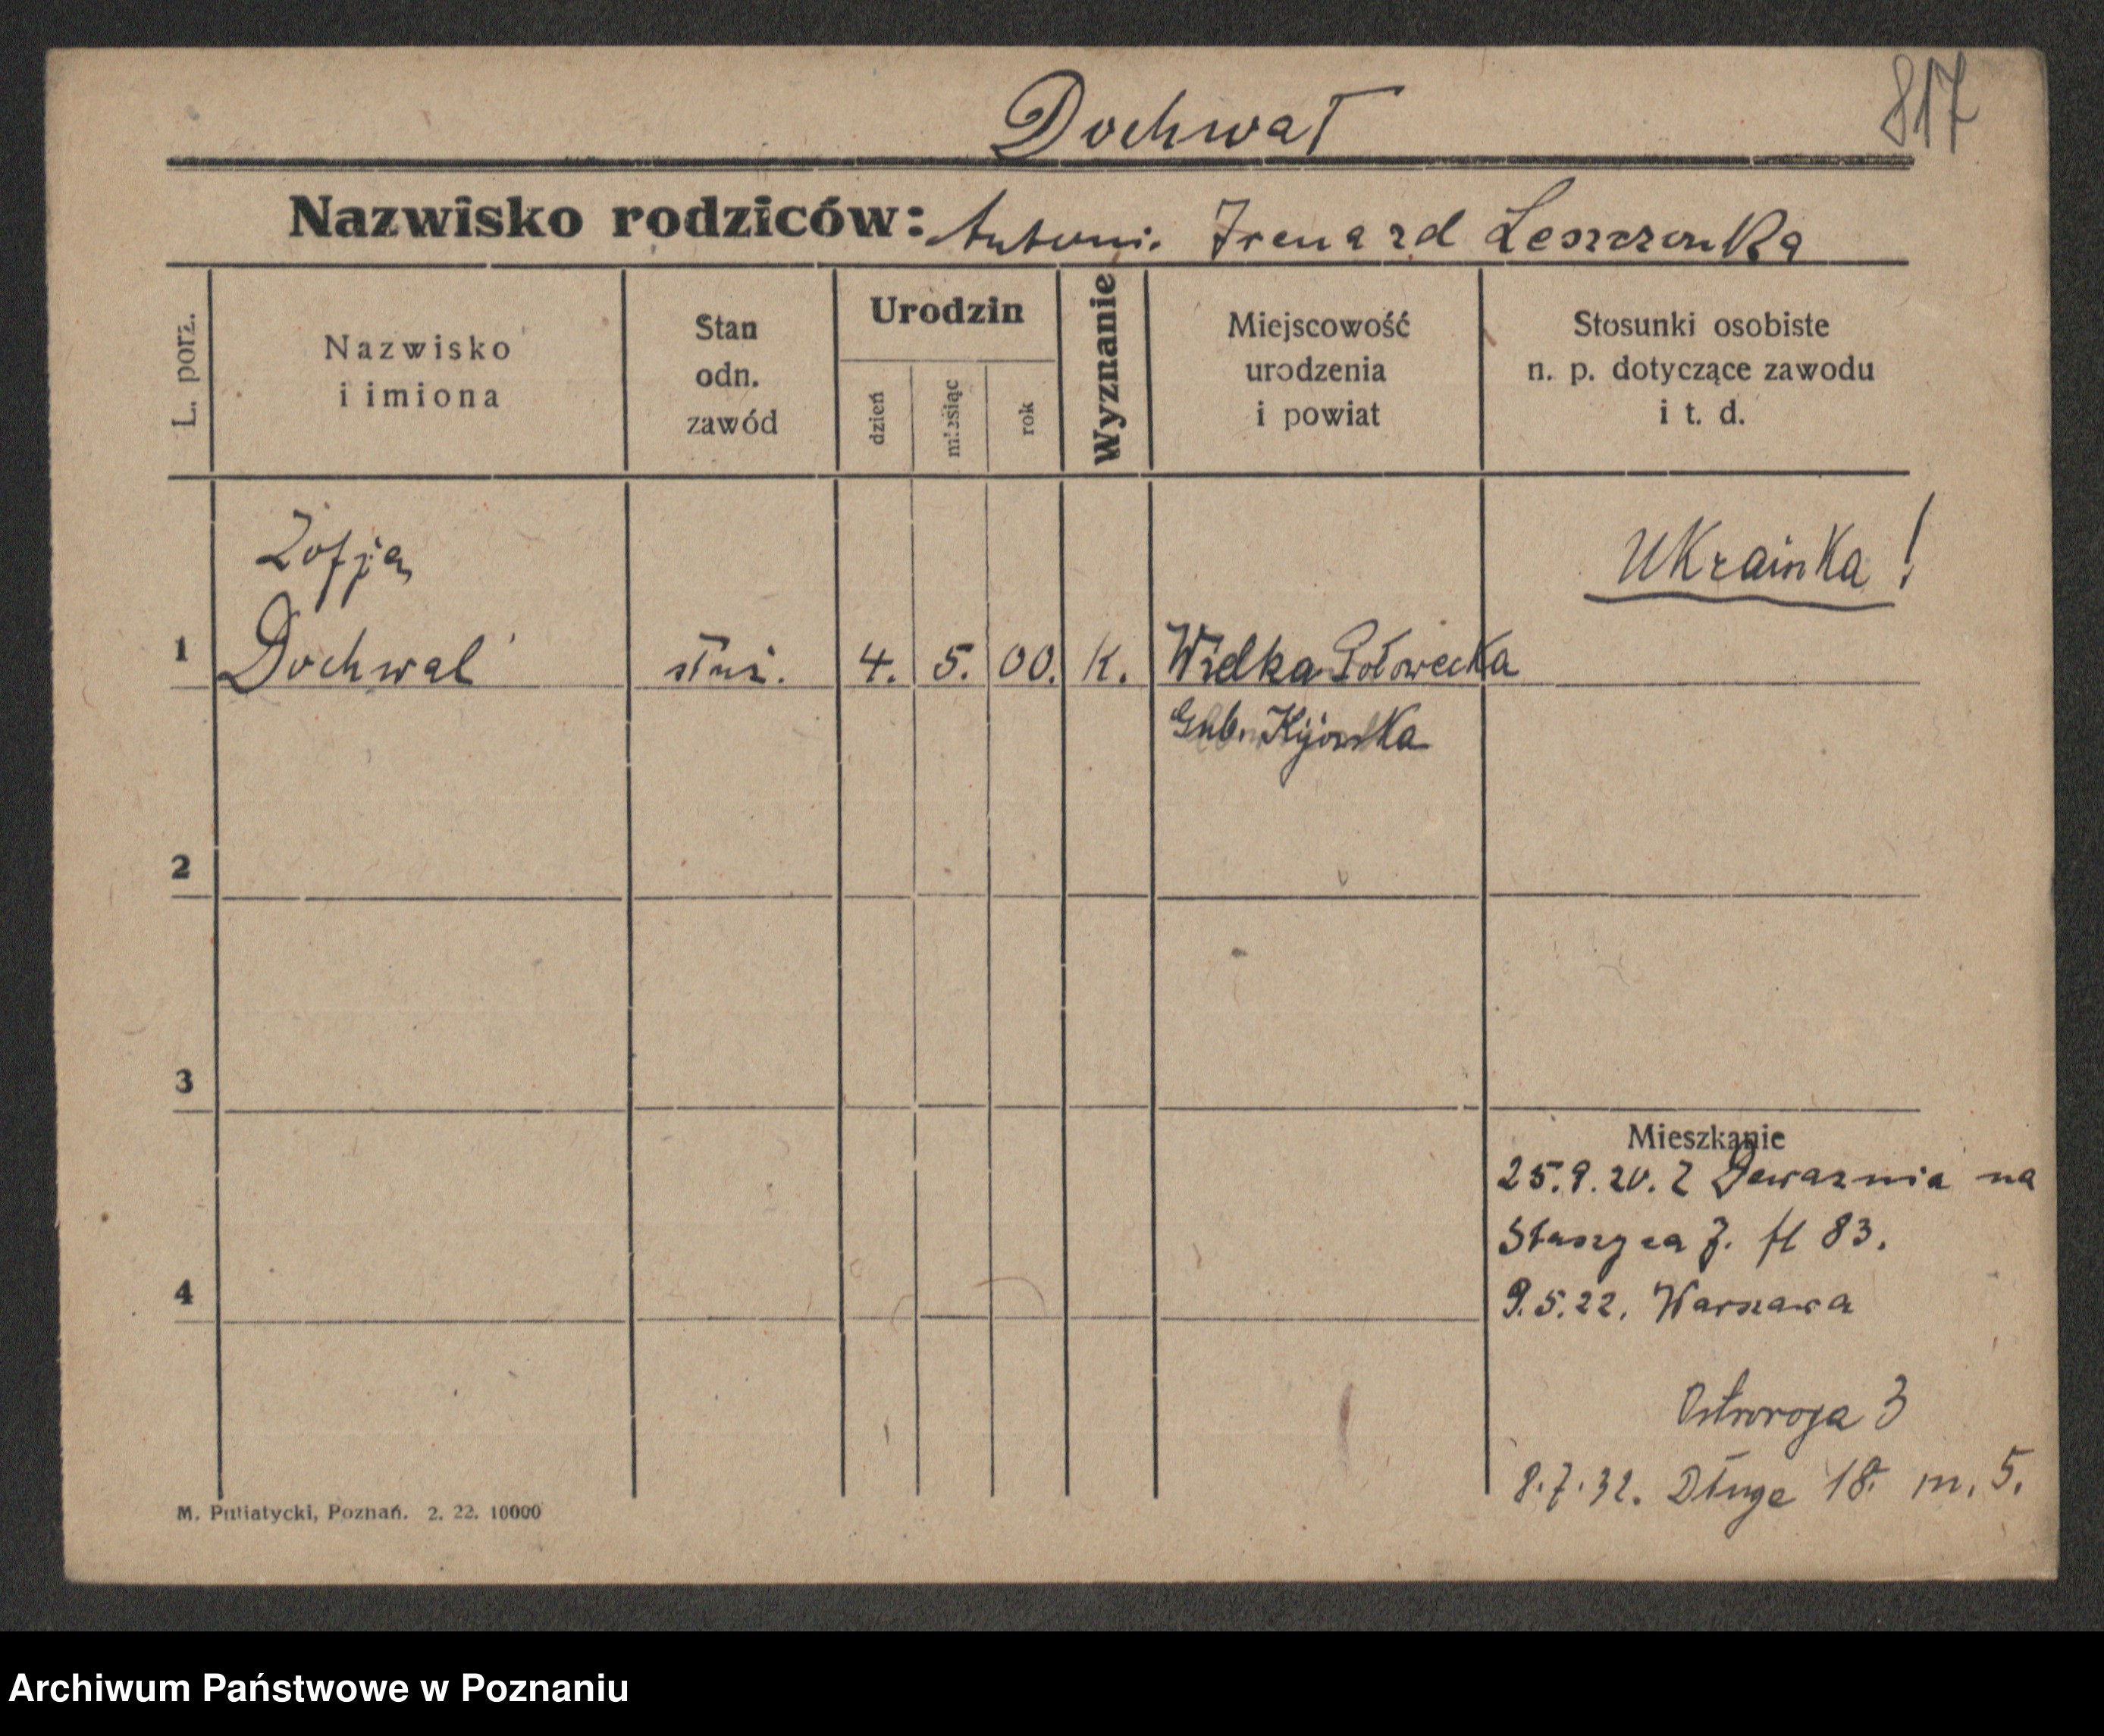 817
Dochwał
Nazwisko rodziców: Antoni. Irena zd Leszczonka
L. porz.
Nazwisko
i imiona
Stan
odn.
zawód
Urodzin
dzień
miesiąc
rok
Wyznanie
Miejscowość
urodzenia
i powiat
Stosunki osobiste
n. p. dotyczące zawodu
i t. d.
Ukrainka!
Zofja
1 Dochwal służ. 4. 5. 00. K. Wielka Połowecka
Gub. Kijowska
2
3
Mieszkanie
25.9.20. Z na
Staszyca 7. fl 83.
4
9.5.22. Warszawa
Ostroroga 3
8.7.32. Długa 18. m. 5.
M. Putiatycki, Poznań. 2. 22. 10000
Archiwum Państwowe w Poznaniu